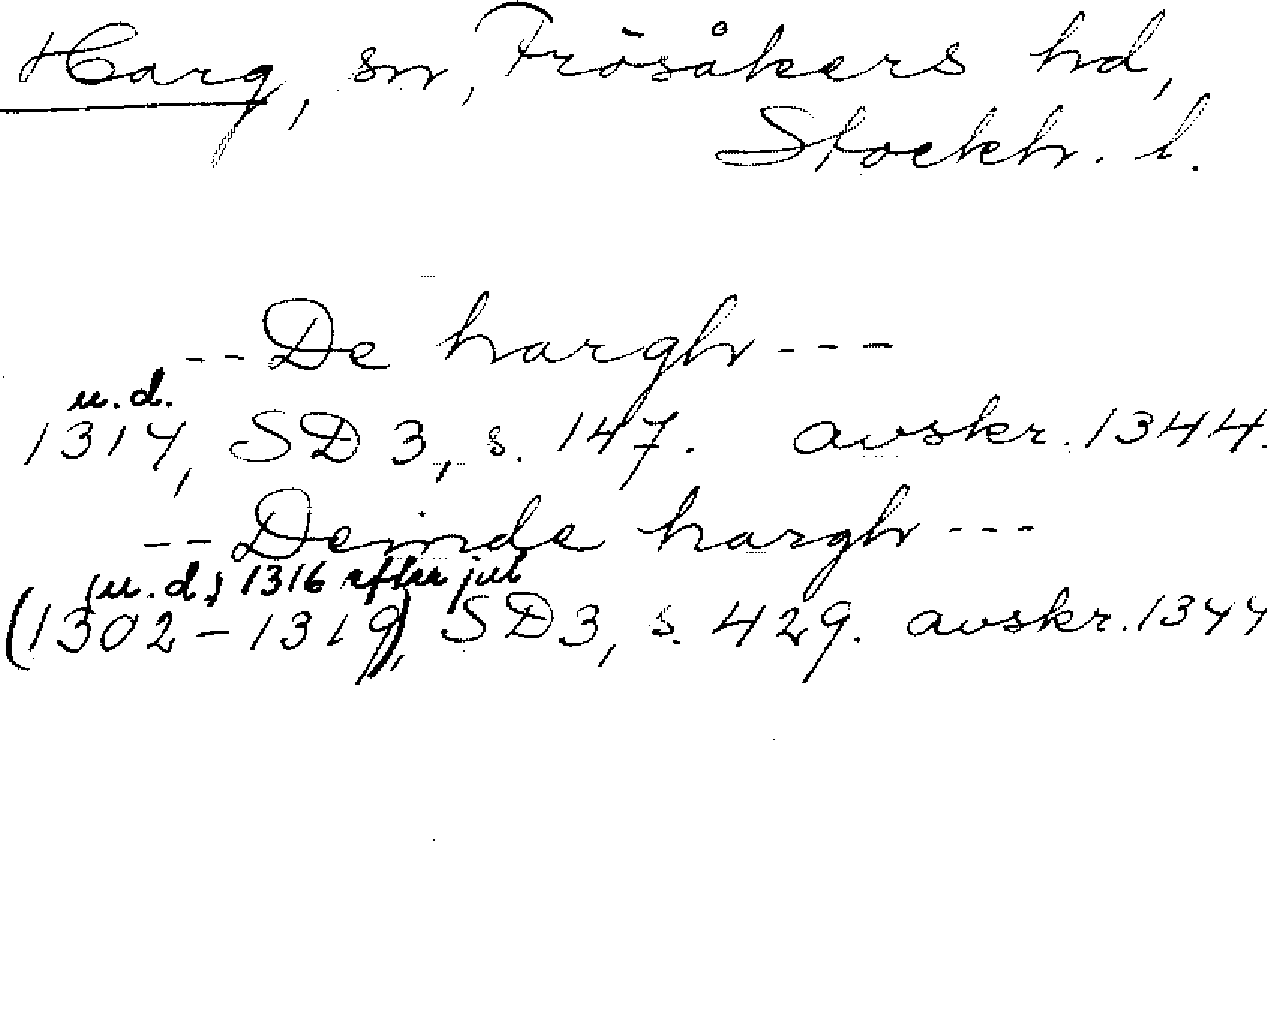 Harg, sn, Frösåkers hd,
Stockh. l.
-- De hargh ---
u.d.
1314, SD 3, s. 147. avskr. 1344.
-- Deinde hargh ---
(u.d.) 1316 efter jul
(1302-1319), SD 3, s. 429. avskr. 1344